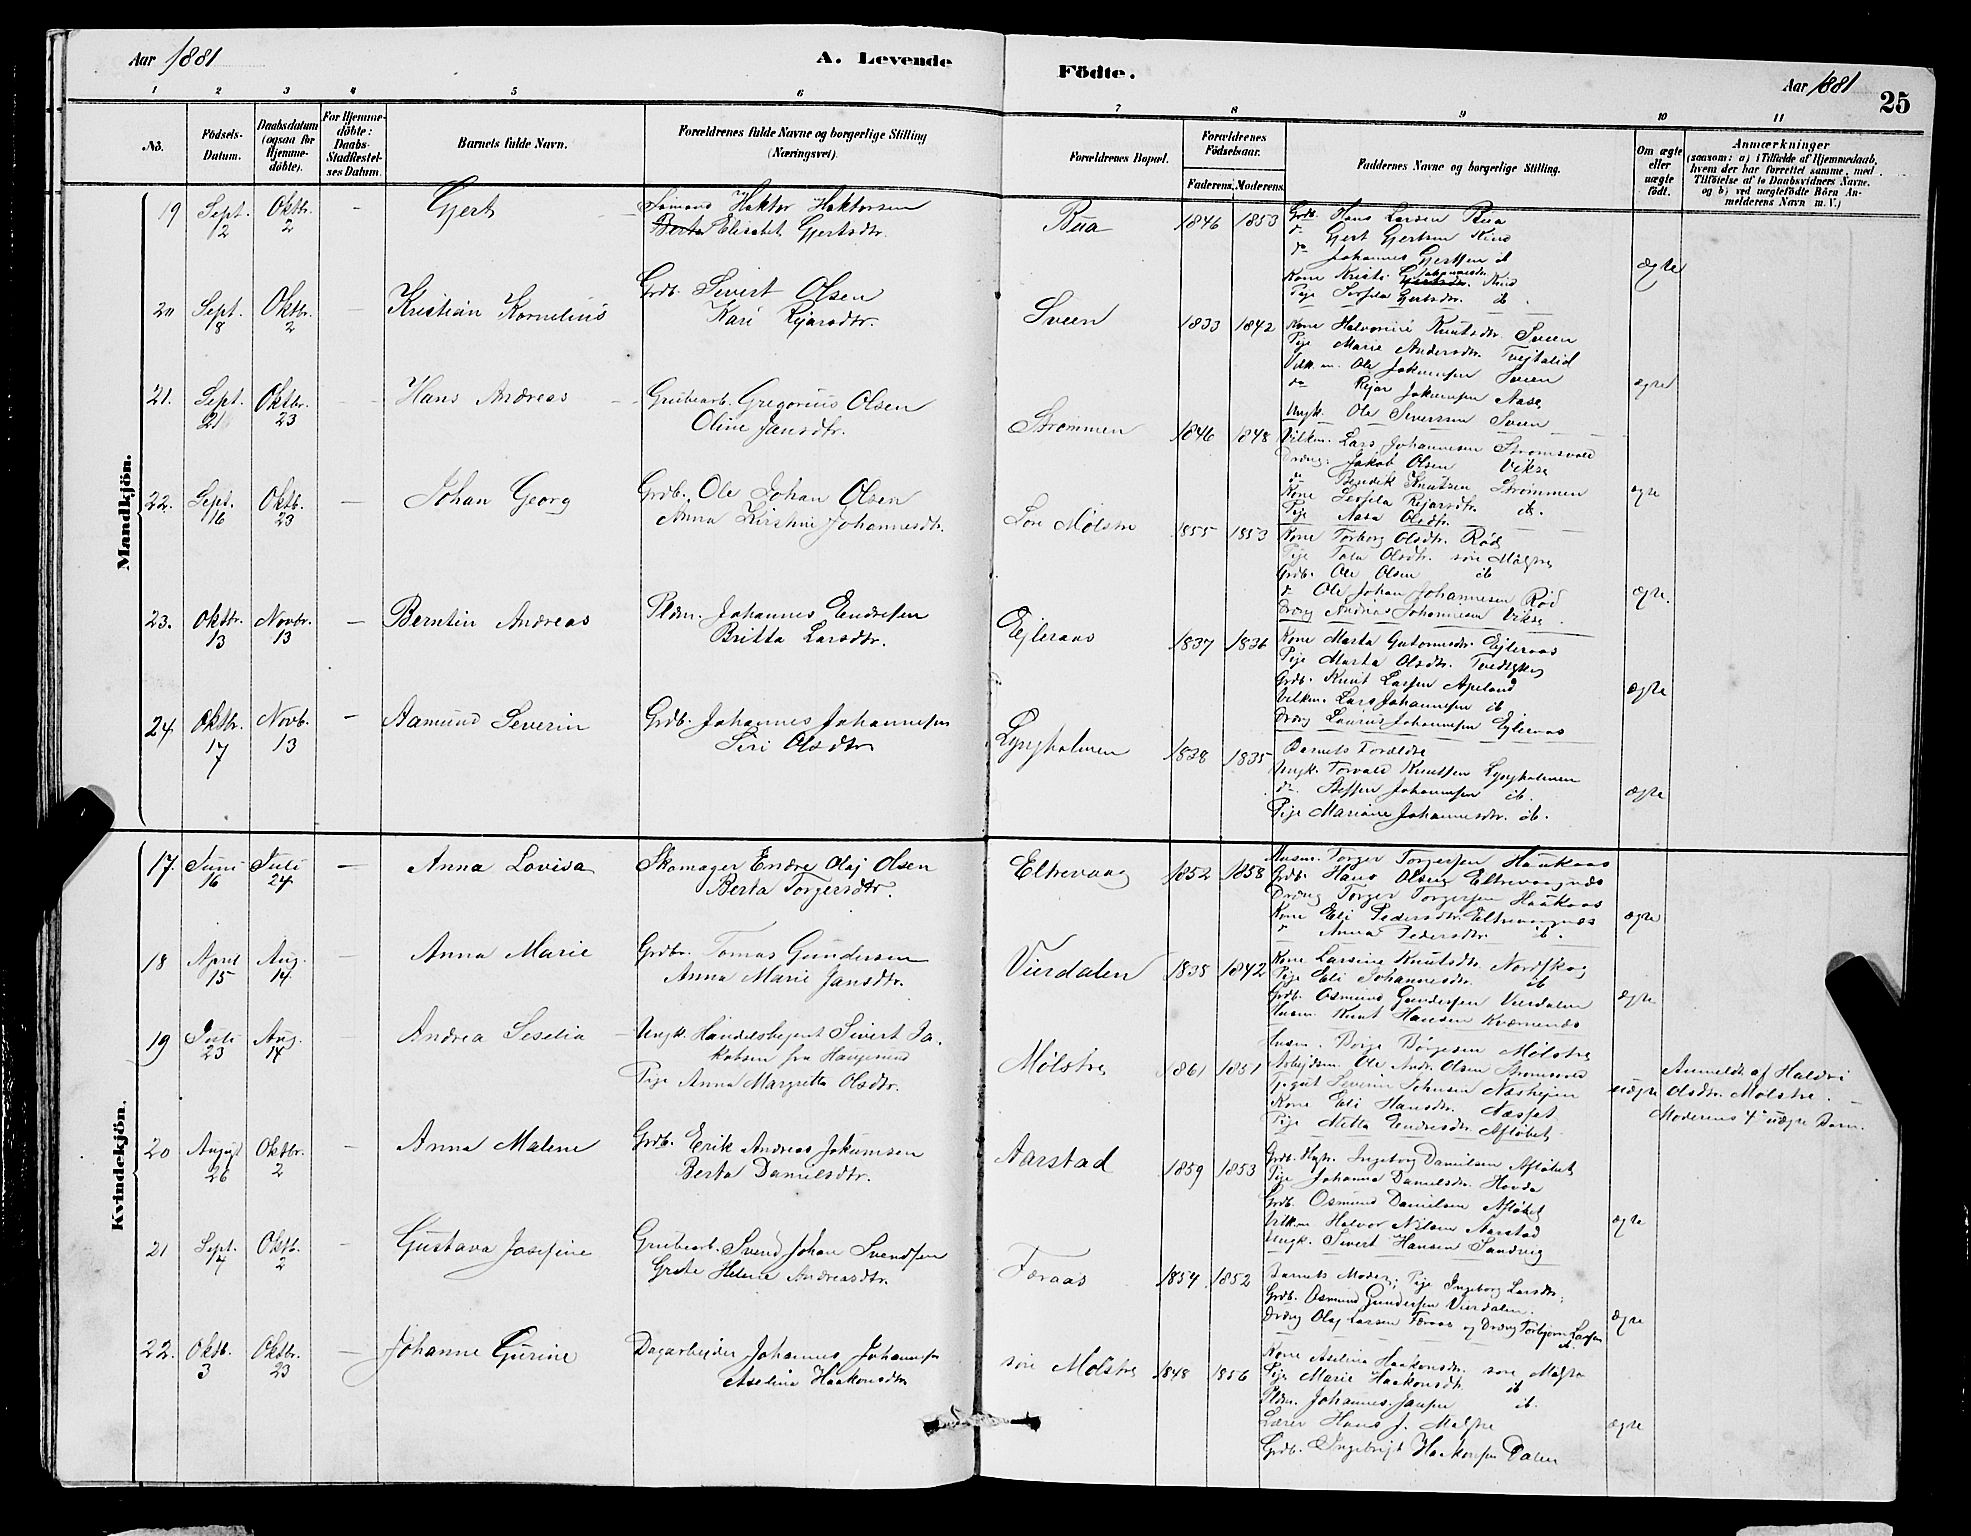 Aar 1881
A. Levende
Födte.
Aar 1881
25
1 2 3 4 5 6 7 8 9 10 11
No.
Födsels-Datum.
Daabsdatum (ogsaa för Hjemmedöbte).
For Hjemmedöbte: Daabs-Stadfæstelses Datum.
Barnets fulde Navn.
Forældrenes fulde Navne og borgerlige Stilling (Næringsvei).
Forældrenes Bopæl.
Forældrenes Födselsaar.
Faderens. Moderens.
Faddernes Navne og borgerlige Stilling.
Om ægte eller uægte födt.
Anmærkninger
(saasom: a) i Tilfælde af Hjemmedaab,
hvem der har forrettet samme, med
Tilföielse af to Daabsvidners Navne,
og b) ved uægtefödte Börn Anmelderens Navn m. V.)
Mandkjön.
19 Sept. 12 Oktbr. 2 — Gjert
Sömand Haktor Haktorsen
Berta Elisabet Gjertsdtr.
Bua 1846 1853
Grdb. Hans Larsen Bua
do Gjert Gjertsen
do Johannes Gjertsen ib
Kone Kristi Johannesdtr.
Pige Sersela Gjertsdtr. ib.
ægte
20 Sept. 18 Oktbr. 2 — Kristian Kornelius
Grdb. Sivert Olsen
Kari Rejarsdtr.
Sveen 1833 1842
Kone Halvorine Knutsdtr. Sveen
Pige Marie Andersdtr. Tvejtalid
Vilk.m. Ole Jokumsen Sveen
do Rejar Jokumsen Aase
Ungk. Ole Severssen Sveen
ægte
21. Sept. 21 Oktbr. 23 — Hans Andreas
Grubearb. Gregorius Olsen
Oline Jansdtr.
Strømmen 1846 1848
Vilkm. Lars Johannesen Strømsvold
Dreng. Jakob Olsen Vikse
do Bendik Knutsen Strømmen
Kone Sersela Rejarsdtr. ib.
Pige Aasa Olsdtr.
ægte
22. Sept. 16 Oktb. 23 — Johan Georg
Grdb. Ole Johan Olsen
Anna Kirstine Johannesdtr.
Søre Mølstre 1855 1853
Kone Torborg Olsdtr. Rød
Pige Tala Olsdtr. søre Mølstre
Grdb. Ole Olsen ib
do Ole Johan Johannesen Rød
Dreng Andreas Johannesen Vikse.
ægte.
23. Oktbr. 13 Novbr. 13 — Berntin Andreas
Pldm. Johannes Endresen
Britta Larsdtr.
Ejleraas 1837 1836
Kone Marta Guttormsdtr. Ejleraas
Pige Marta Olsdtr.
Grdb. Knut Larsen Apeland
Vilkm. Lars Johannesen ib
Dreng Laurus Johannesen Ejleraas
ægte
24. Oktbr. 17 Novb. 13 — Aamund Severin
Grdb. Johannes Johannesen
Siri Olsdtr
Lyngholmen 1838 1835
Barnets Forældre
Ungk. Torvald Knutsen Lyngholmen
do. Steffen Johannesen ib.
Pige Mariane Johannesdtr. ib.
ægte
Kvindekjön.
17. Juni 16 Juli 24 — Anna Lovisa
Skomager Endre Olaj Olsen
Berta Torgersdtr.
Eltrevaag 1852 1858
Husm. Torger Torgersen Haukaas
Grdb. Hans Olsen Eltrevaagnæs
Dreng Torger Torgersen Haukaas
Kone Eli Pedersdtr. Eltrevaagnæs
do Anna Pedersdtr. ib.
ægte
18 April 15 Aug. 14 — Anna Marie
Grdbr. Tomas Gundersen
Anna Marie Jansdtr.
Vierdalen 1835 1842
Kone Larsine Knutsdtr. Nordskog
Pige Eli Johannesdtr. ib
Grdb. Osmund Gundersen Vierdalen
Husm. Knut Hansen Kværnenæs
ægte
19 Juli 23 Aug. 14 — Andrea Seselia
Ungk. Handelsbetjent Sivert Jakobsen fra Haugesund
Pige Anna Margretta Olsdtr.
Mølstre 1861 1851
Husm. Børge Børgesen Mølstre
Arbejdsm. Ole Andr. Olsen Strømsvold
Severin Johnsen
Kone Eli Hansdtr. Næsset
Pige Mette Endresdtr. Afløbet
uægte
Anmeldt af Haldri
Olsdtr. Mølstre.
Moderens 4de uægte Barn.
20 August 26 Oktbr. 2 — Anna Malene
Grdb. Erik Andreas Jokumsen
Berta Danielsdtr.
Aarstad 1859 1853
Grdb. Ingeborg Danielsen Afløbet
Pige Johanna Danielsdtr. Hovda
Grdb. Osmund Danielsen Afløbet
Vilk.m Halvor Nilsen Aarstad
Ungk. Sivert Hansen Sandvig
ægte
21 Sept. 4 Oktb. 2 — Gustava Josefine
Grubearb. Svend Johan Svendsen
Grete Helene Andreasdtr.
Færaas 1854 1852
Barnets Moder; Pige Ingeborg Larsdtr;
Grdb. Osmund Gundersen Vierdalen.
Dreng Olaj Larsen Færaas og Dreng Torbjørn Larsen ib.
ægte
22. Oktb. 3 Oktbr. 23 — Johanne Gurine
Dagarbejder Johannes Johannesen
Aselina Haakonsdtr
søre Mølstre 1848 1856
Kone Aselina Haakonsdtr. søre Mølstre
Pige Marie Haakonsdtr. ib
Pldm. Johannes Jansen ib.
Lærer Hans J. Mølstre
Grdb. Ingebrigt Haakonsen Dalen
ægte